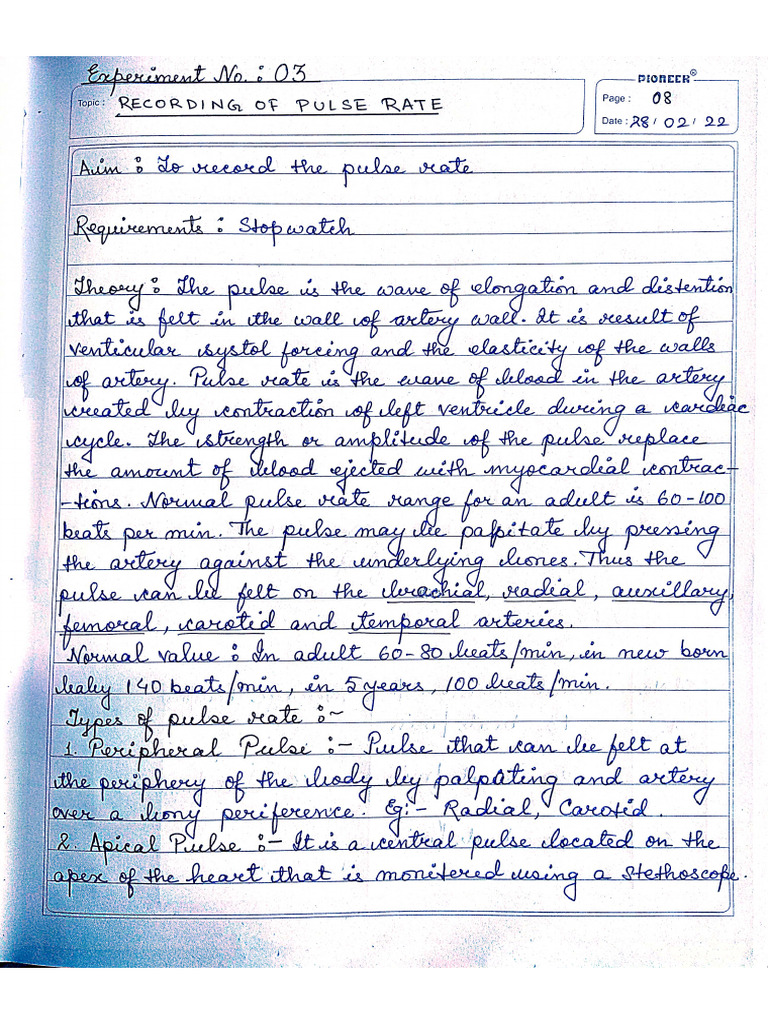 Experiment No. : 03
PIONEER®
Topic : RECORDING OF PULSE RATE
Page : 08
Date : 28 / 02 / 22
Aim : To record the pulse rate
Requirements : Stopwatch
Theory : The pulse is the wave of elongation and distention
that is felt in the wall of artery wall. It is result of
venticular systol forcing and the elasticity of the walls
of artery. Pulse rate is the wave of blood in the artery
created by contraction of left ventricle during a cardiac
cycle. The strength or amplitude of the pulse replace
the amount of blood ejected with myocardial contrac-
-tions. Normal pulse rate range for an adult is 60-100
beats per min. The pulse may be palpitate by pressing
the artery against the underlying bones. Thus the
pulse can be felt on the brachial, radial, auxillary,
femoral, carotid and temporal arteries.
Normal value : In adult 60-80 beats/min, in new born
baby 140 beats/min, in 5 years, 100 beats/min.
Types of pulse rate :~
1. Peripheral Pulse :- Pulse that can be felt at
the periphery of the body by palpating and artery
over a bony periference. Eg:- Radial, Carotid.
2. Apical Pulse :- It is a central pulse located on the
apex of the heart that is monitered using a stethoscope.